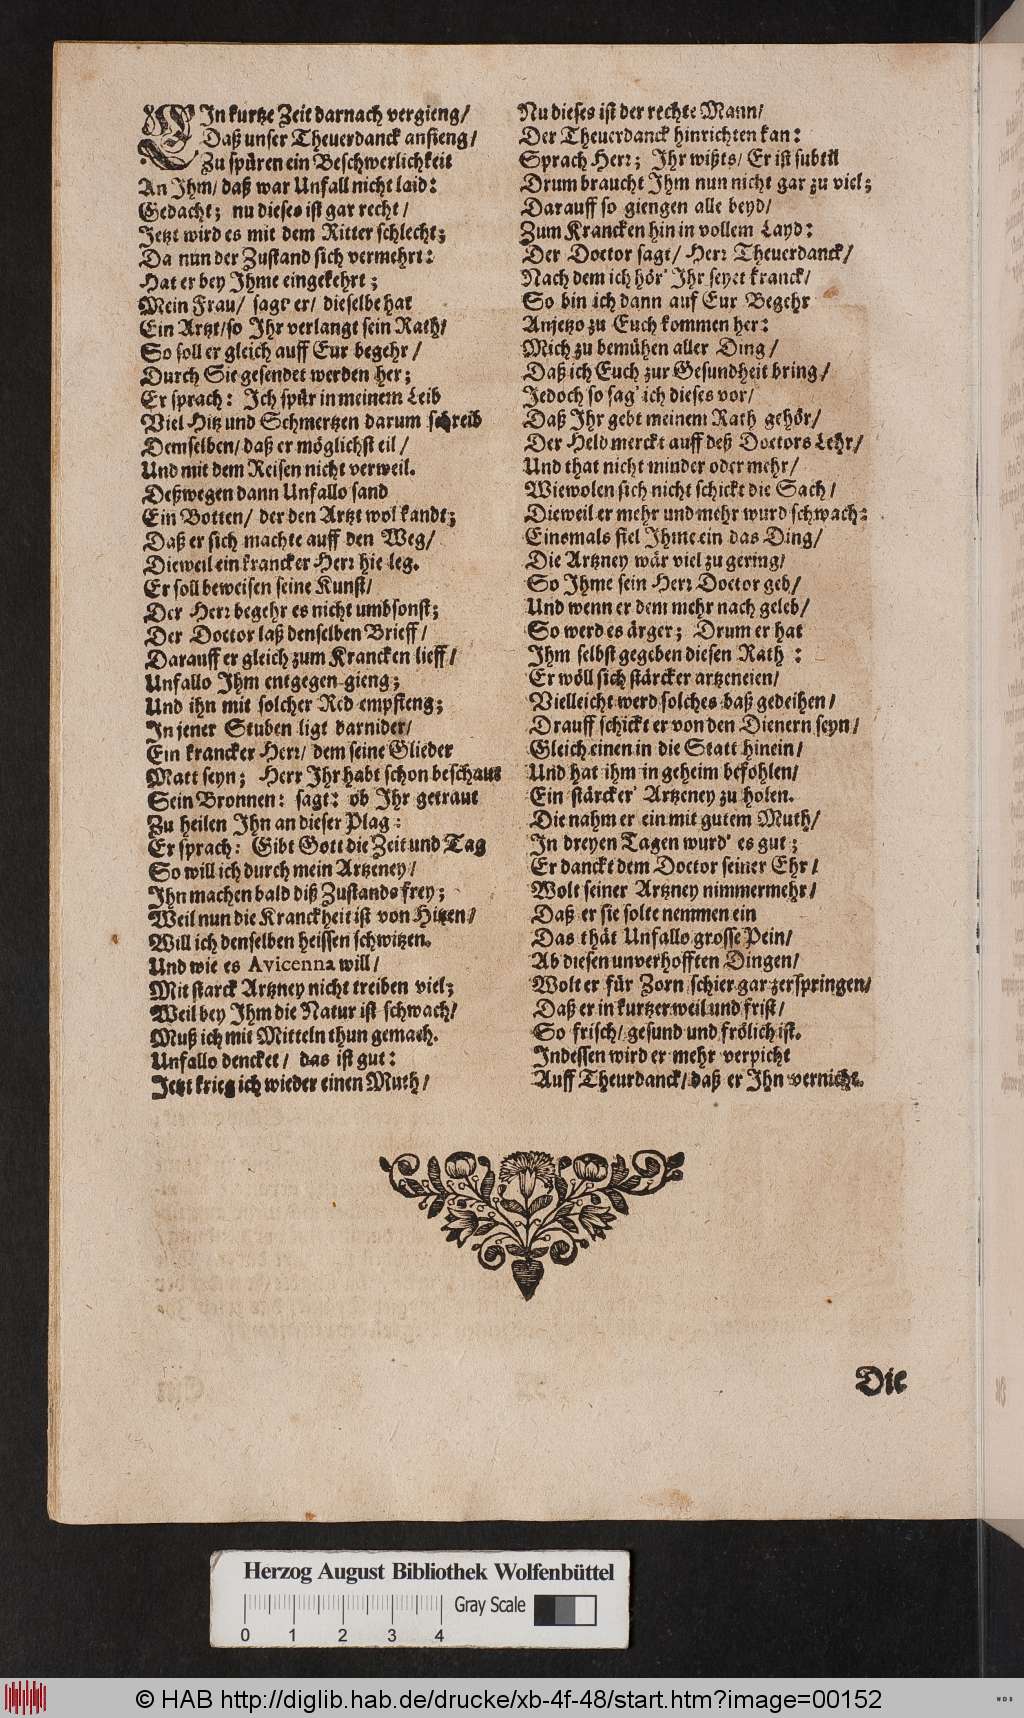 EIn kurtze Zeit darnach vergieng/
Daß unser Theuerdanck anfieng/
Zu spüren ein Beschwerlichkeit
An Ihm/ daß war Unfall nicht laid:
Gedacht; nu dieses ist gar recht/
Jetzt wird es mit dem Ritter schlecht;
Da nun der Zustand sich vermehrt:
Hat er bey Ihme eingekehrt;
Mein Frau/ sagt er/ dieselbe hat
Ein Artzt/so Ihr verlangt sein Rath/
So soll er gleich auff Eur begehr/
Durch Sie gesendet werden her;
Er sprach: Ich spür in meinem Leib
Viel Hitz und Schmertzen darum schreib
Demselben/ daß er möglichst eil/
Und mit dem Reisen nicht verweil.
Deßwegen dann Unfallo sand
Ein Botten/ der den Artzt wol kandt;
Daß er sich machte auff den Weg/
Dieweil ein krancker Herr hie leg.
Er soll beweisen seine Kunst/
Der Herr begehr es nicht umbsonst;
Der Doctor laß denselben Brieff/
Darauff er gleich zum Krancken lieff/
Unfallo Ihm entgegen gieng;
Und ihn mit solcher Red empfieng;
In jener Stuben ligt darnider/
Ein krancker Herr/ dem seine Glieder
Matt seyn; Herr Ihr habt schon beschaut
Sein Bronnen: sagt: ob Ihr getraut
Zu heilen Ihn an dieser Plag:
Er sprach: Gibt Gott die Zeit und Tag
So will ich durch mein Artzeney/
Ihn machen bald diß Zustands frey;
Weil nun die Kranckheit ist von Hitzen/
Will ich denselben heissen schwitzen.
Und wie es Avicenna will/
Mit starck Artzney nicht treiben viel;
Weil bey Ihm die Natur ist schwach/
Muß ich mit Mitteln thun gemach.
Unfallo dencket/ das ist gut:
Jetzt krieg ich wieder einen Muth/
Nu dieses ist der rechte Mann/
Der Theuerdanck hinrichten kan:
Sprach Herr; Ihr wißts/ Er ist subtil
Drum braucht Ihm nun nicht gar zu viel;
Darauff so giengen alle beyd/
Zum Krancken hin in vollem Layd:
Der Doctor sagt/ Herr Theuerdanck/
Nach dem ich hör' Ihr seyet kranck/
So bin ich dann auf Eur Begehr
Anjetzo zu Euch kommen her:
Mich zu bemühen aller Ding/
Daß ich Euch zur Gesundheit bring/
Jedoch so sag' ich dieses vor/
Daß Ihr gebt meinem Rath gehör/
Der Held merckt auff deß Doctors Lehr/
Und that nicht minder oder mehr/
Wiewolen sich nicht schickt die Sach/
Dieweil er mehr und mehr wurd schwach:
Einsmals fiel Ihme ein das Ding/
Die Artzney wär viel zu gering/
So Ihme sein Herr Doctor geb/
Und wenn er dem mehr nach geleb/
So werd es ärger; Drum er hat
Ihm selbst gegeben diesen Rath:
Er wöll sich stärcker artzeneien/
Vielleicht werd solches baß gedeihen/
Drauff schickt er von den Dienern seyn/
Gleich einen in die Statt hinein/
Und hat ihm in geheim befohlen/
Ein stärcker' Artzeney zu holen.
Die nahm er ein mit gutem Muth/
In dreyen Tagen wurd' es gut;
Er danckt dem Doctor seiner Ehr/
Wolt seiner Artzney nimmermehr/
Daß er sie solte nemmen ein
Das thät Unfallo grosse Pein/
Ab diesen unverhofften Dingen/
Wolt er für Zorn schier gar zerspringen/
Daß er in kurtzer weil und frist/
So frisch/ gesund und frölich ist.
Indessen wird er mehr verpicht
Auff Theurdanck/ daß er Ihn vernicht.
Die
Herzog August Bibliothek Wolfenbüttel
Gray Scale
0 1 2 3 4
© HAB http://diglib.hab.de/drucke/xb-4f-48/start.htm?image=00152